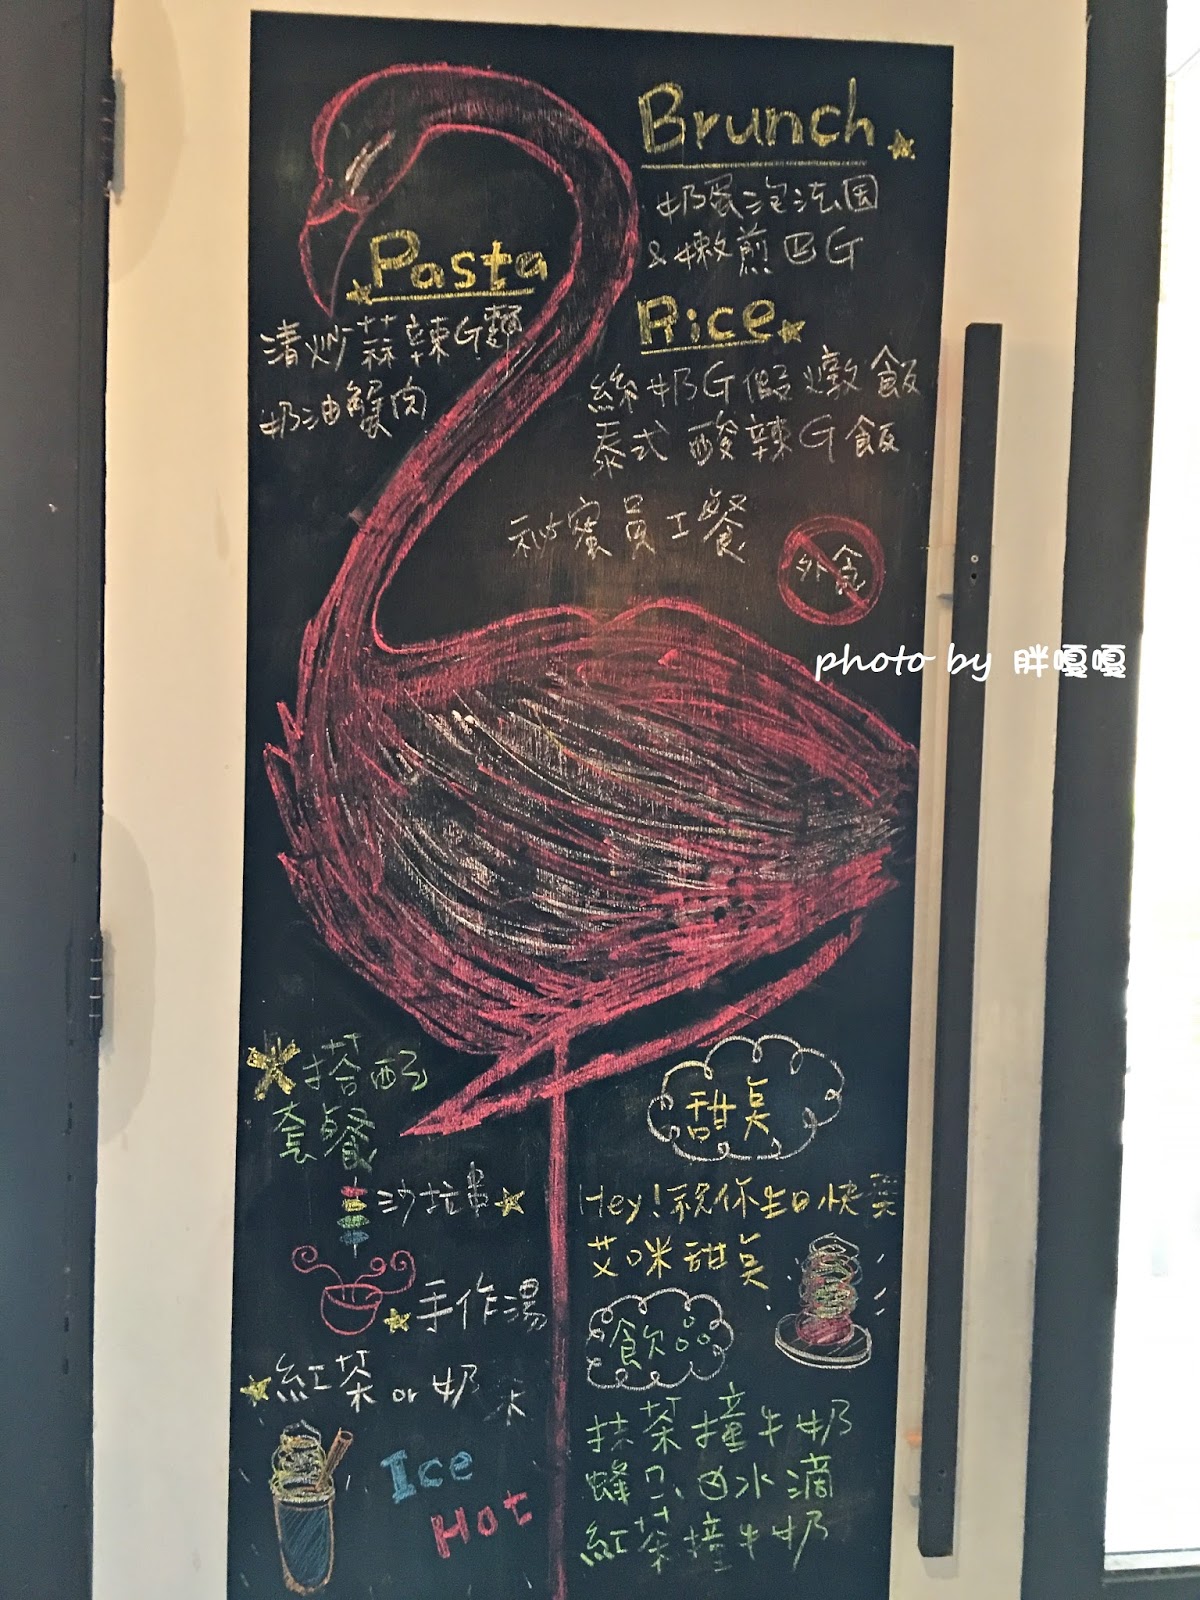 Brunch
奶蛋泡法国
&嫩煎BG
Pasta
清炒蒜辣G麵
奶油蟹肉
Rice
絲奶G假燉飯
泰式酸辣G飯
祕蜜員工餐
外食
photo by 胖嘎嘎
搭配
套餐
沙拉
手作湯
紅茶 or 奶
Ice
Hot
甜臭
Hey!祝你生日快樂
艾咪甜臭
飲品
抹茶撞牛奶
蜂 冰滴
紅茶撞牛奶